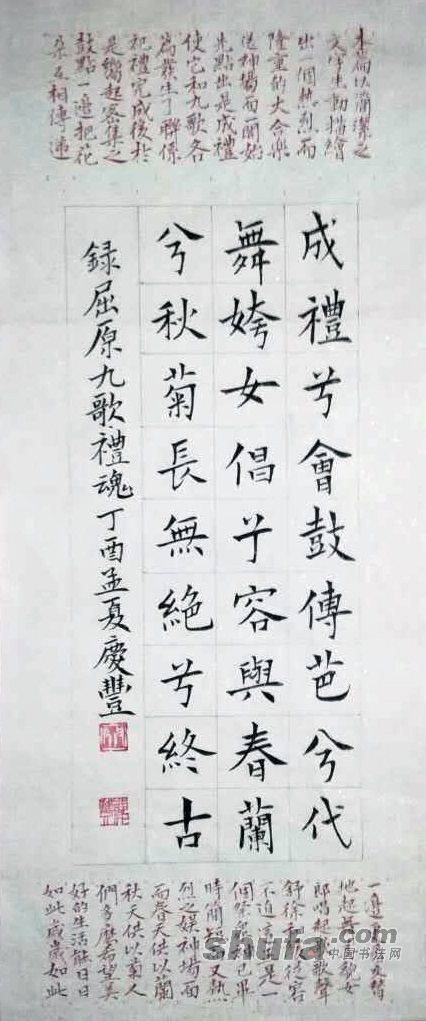 本篇以簡潔之
文字生動描繪
出一個熱烈而
隆重的大合樂
送神場面一開始
先點出是成禮
使它和九歌各
篇發生了聯係
祀禮完成後於
是響起密集之
鼓點一邊把花
朵互相傳遞
成禮兮會鼓傳芭兮代
舞姱女倡兮容與春蘭
兮秋菊長無絕兮終古
錄屈原九歌禮魂丁酉孟夏慶豐
一邊替
地起舞美貌女
郎唱起歌聲
舒徐從容
不迫這是一
個祭神已畢
時簡短又熱
烈之娛神場面
而春天供以蘭
秋天供以菊人
們多麼希望美
好的生活能日日
如此歲歲如此
shufa.com
中国书法网